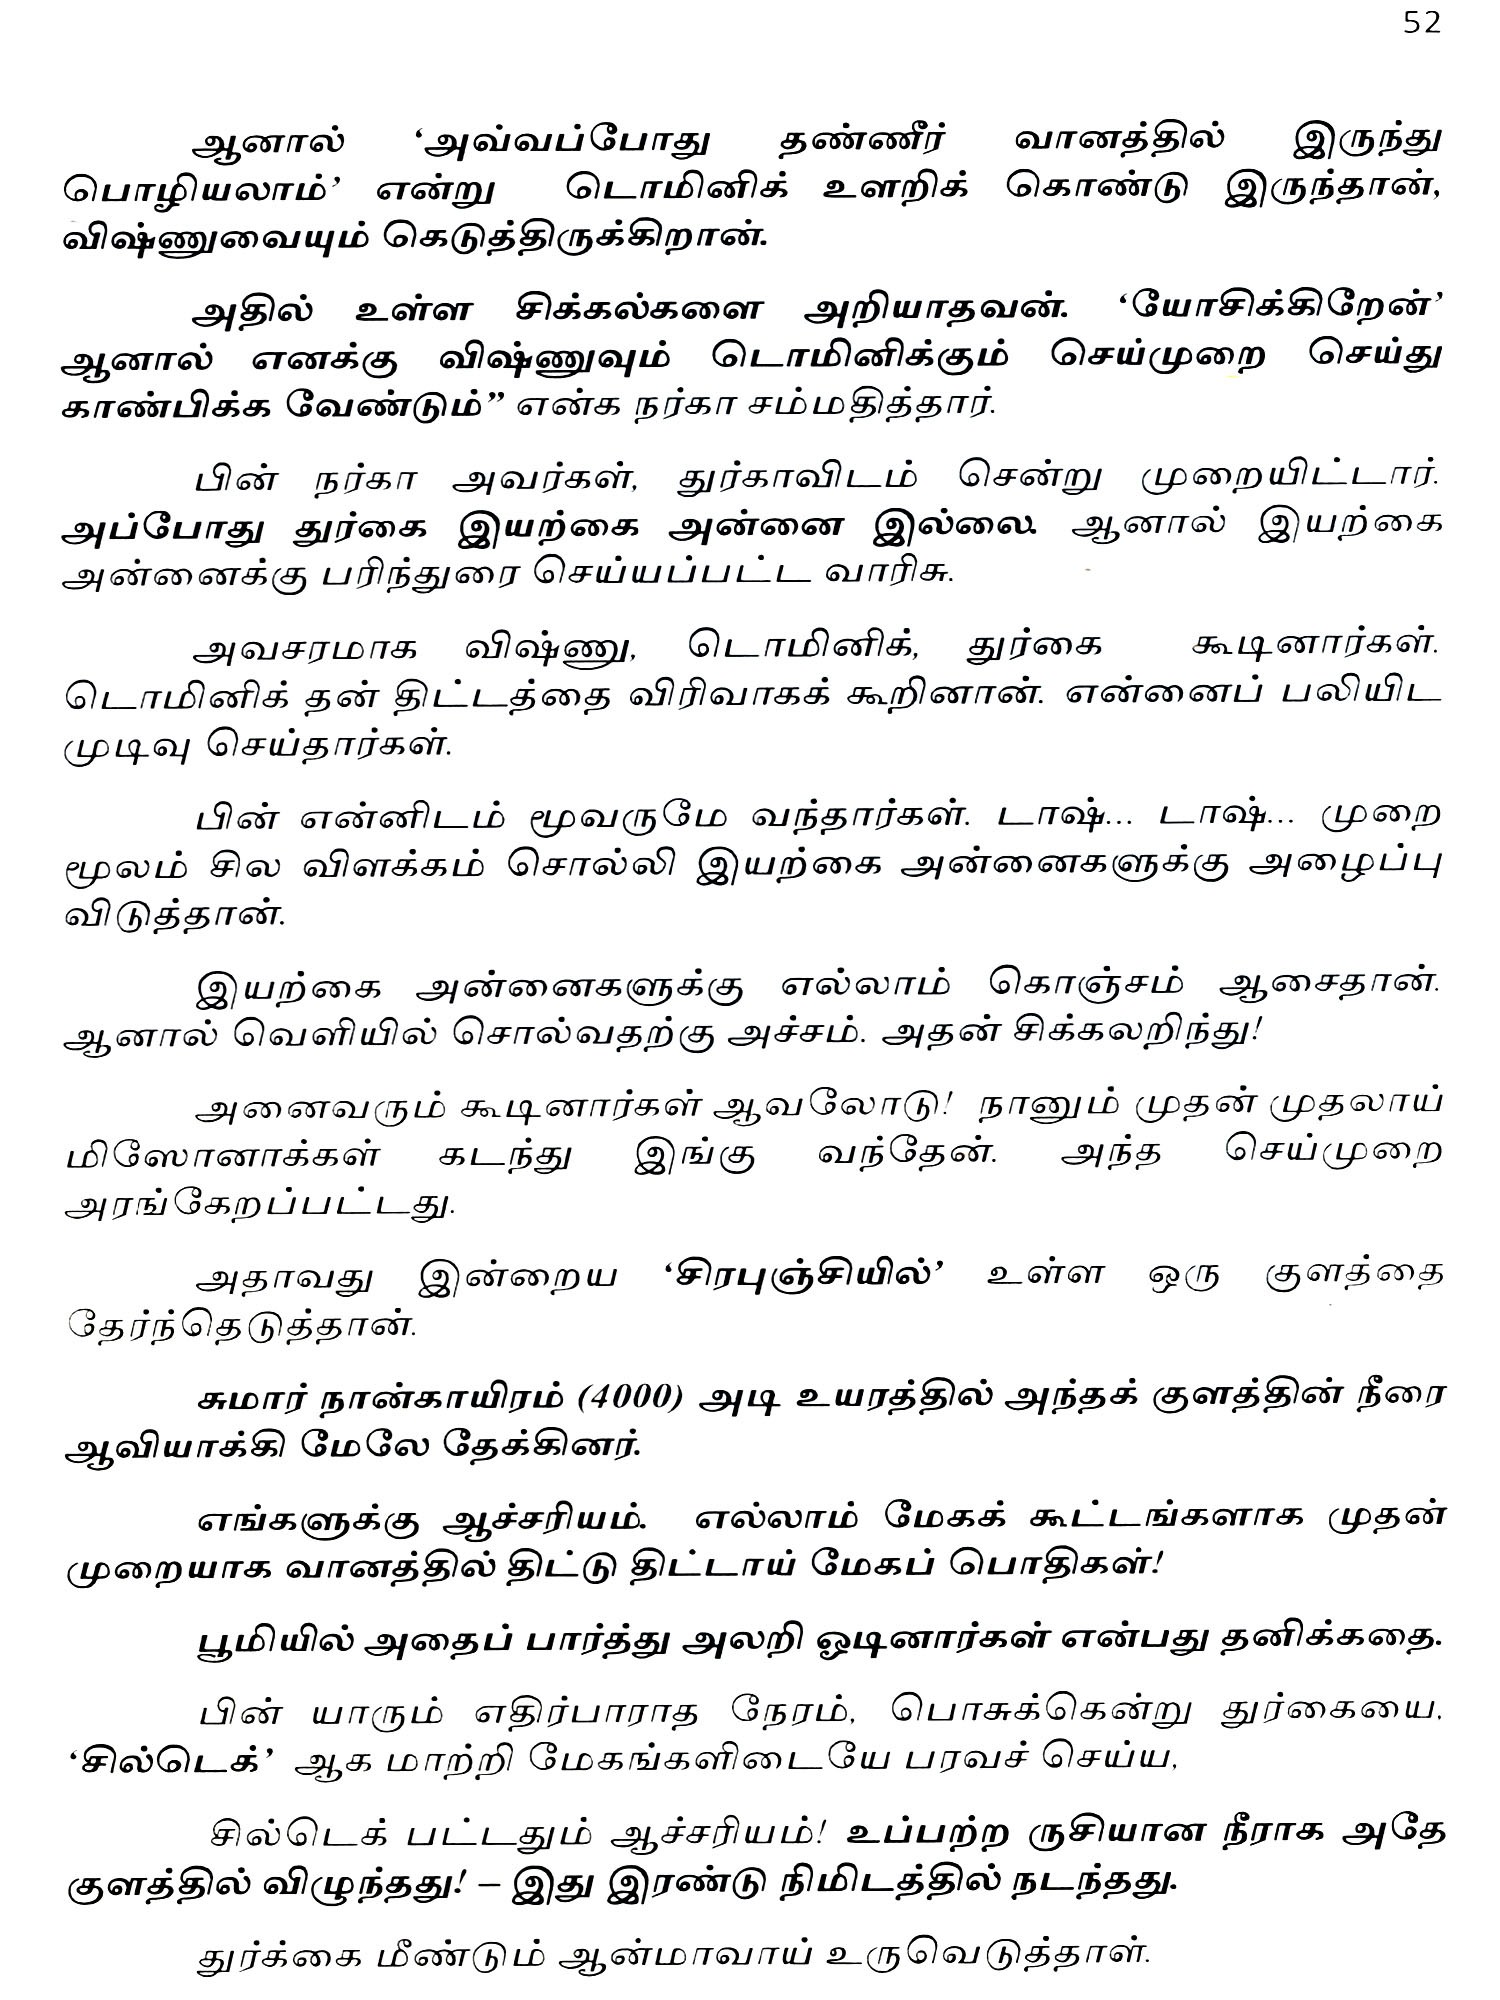 52
ஆனால் ‘அவ்வப்போது தண்ணீர் வானத்தில் இருந்து
பொழியலாம்’ என்று டொமினிக் உளறிக் கொண்டு இருந்தான்,
விஷ்ணுவையும் கெடுத்திருக்கிறான்.
அதில் உள்ள சிக்கல்களை அறியாதவன். ‘யோசிக்கிறேன்’
ஆனால் எனக்கு விஷ்ணுவும் டொமினிக்கும் செய்முறை செய்து
காண்பிக்க வேண்டும்” என்க நர்கா சம்மதித்தார்.
பின் நர்கா அவர்கள், துர்காவிடம் சென்று முறையிட்டார்.
அப்போது துர்கை இயற்கை அன்னை இல்லை. ஆனால் இயற்கை
அன்னைக்கு பரிந்துரை செய்யப்பட்ட வாரிசு.
அவசரமாக விஷ்ணு, டொமினிக், துர்கை கூடினார்கள்.
டொமினிக் தன் திட்டத்தை விரிவாகக் கூறினான். என்னைப் பலியிட
முடிவு செய்தார்கள்.
பின் என்னிடம் மூவருமே வந்தார்கள். டாஷ்... டாஷ்... முறை
மூலம் சில விளக்கம் சொல்லி இயற்கை அன்னைகளுக்கு அழைப்பு
விடுத்தான்.
இயற்கை அன்னைகளுக்கு எல்லாம் கொஞ்சம் ஆசைதான்.
ஆனால் வெளியில் சொல்வதற்கு அச்சம். அதன் சிக்கலறிந்து!
அனைவரும் கூடினார்கள் ஆவலோடு! நானும் முதன் முதலாய்
மிஸோனாக்கள் கடந்து இங்கு வந்தேன். அந்த செய்முறை
அரங்கேறப்பட்டது.
அதாவது இன்றைய ‘சிரபுஞ்சியில்’ உள்ள ஒரு குளத்தை
தேர்ந்தெடுத்தான்.
சுமார் நான்காயிரம் (4000) அடி உயரத்தில் அந்தக் குளத்தின் நீரை
ஆவியாக்கி மேலே தேக்கினர்.
எங்களுக்கு ஆச்சரியம். எல்லாம் மேகக் கூட்டங்களாக முதன்
முறையாக வானத்தில் திட்டு திட்டாய் மேகப் பொதிகள்!
பூமியில் அதைப் பார்த்து அலறி ஓடினார்கள் என்பது தனிக்கதை.
பின் யாரும் எதிர்பாராத நேரம், பொசுக்கென்று துர்கையை,
‘சில்டெக்’ ஆக மாற்றி மேகங்களிடையே பரவச் செய்ய,
சில்டெக் பட்டதும் ஆச்சரியம்! உப்பற்ற ருசியான நீராக அதே
குளத்தில் விழுந்தது! – இது இரண்டு நிமிடத்தில் நடந்தது.
துர்க்கை மீண்டும் ஆன்மாவாய் உருவெடுத்தாள்.